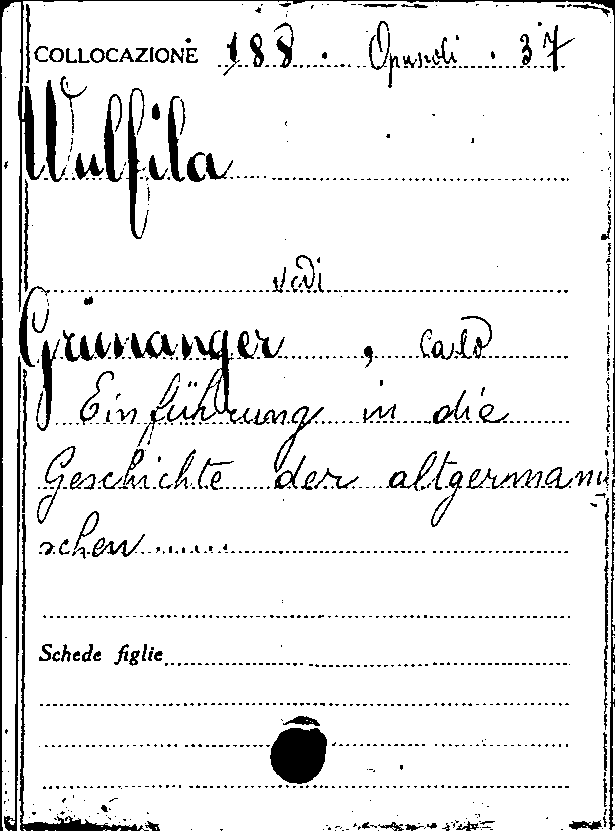 COLLOCAZIONE 188 . Opuscoli . 37
Wulfila
vedi
Grünanger , Carlo
Einführung in die
Geschichte der altgermani-
schen ......
Schede figlie